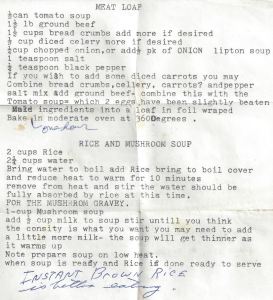 MEAT LOAF
½can tomato soup
1½ lb ground beef
1½ cups bread crumbs add more if desired
½ cup diced celery more if desired
½cup chopped onion,or add½ pk of ONION lipton soup
1 teaspoon salt
½ teaspoon black pepper
If you wish to add some diced carrots you may
Combine bread crumbs,cellery, carrots? andpepper
salt mix add ground beef- combine this with the
Tomato soup= which 2 eggs have been slightly beaten
Mold ingredients into a loaf in foil wraped
Bake in moderate oven at 360Degrees .
1 one hour
RICE AND MUSHROOM SOUP
2 cups Rice
2½ cups water
Bring water to boil add Rice bring to boil cover
and reduce heat to warm for 10 minutes
remove from heat and stir the water should be
fully absorbed by rice at this time.
FOR THE MUSHROOM GRAVEY.
1-cup Mushroom soup
add ½ cup milk to soup stir untill you think
the consity is what you want you may need to add
a little more milk- the soup will get thinner as
it warms up
Note prepare soup on low heat.
when soup is ready and Rice if done ready to serve
INSTANT BROWN RICE
is better eating.